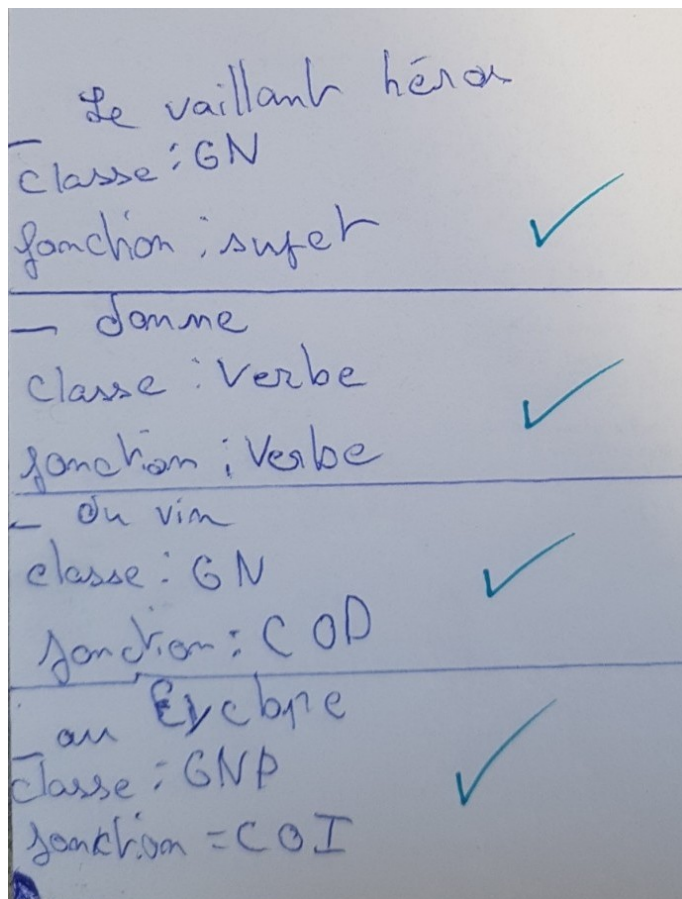 – Le vaillant héros
classe : GN
fonction : sujet
– donne
classe : Verbe
fonction : Verbe
– du vin
classe : GN
fonction : COD
– au Cyclope
classe : GNP
fonction = COI